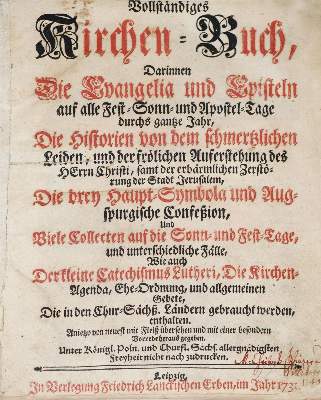 Vollständiges
Kirchen-Buch,
Darinnen
Die Evangelia und Episteln
auf alle Fest-Sonn-und Apostel-Tage
durchs gantze Jahr,
Die Historien von dem schmertzlichen
Leiden, und der frölichen Auferstehung des
HErrn Christi, samt der erbärmlichen Zerstö-
rung der Stadt Jerusalem,
Die drey Haupt-Symbola und Aug-
spurgische Confeßion,
Und
Viele Collecten auf die Sonn-und Fest-Tage,
und unterschiedliche Fälle,
Wie auch
Der kleine Catechismus Lutheri, Die Kirchen-
Agenda, Ehe-Ordnung, und allgemeinen
Gebete,
Die in den Chur-Sächß. Ländern gebraucht werden,
enthalten.
Anietzo von neuest mit Fleiß übersehen und mit einer besondern
Vorrede heraus gegeben.
Unter Königl. Poln. und Churfl. Sächs. allergnädigsten
Freyheit nicht nachzudrucken.
Leipzig,
In Verlegung Friedrich Lanckischen Erben, im Jahr 1731.